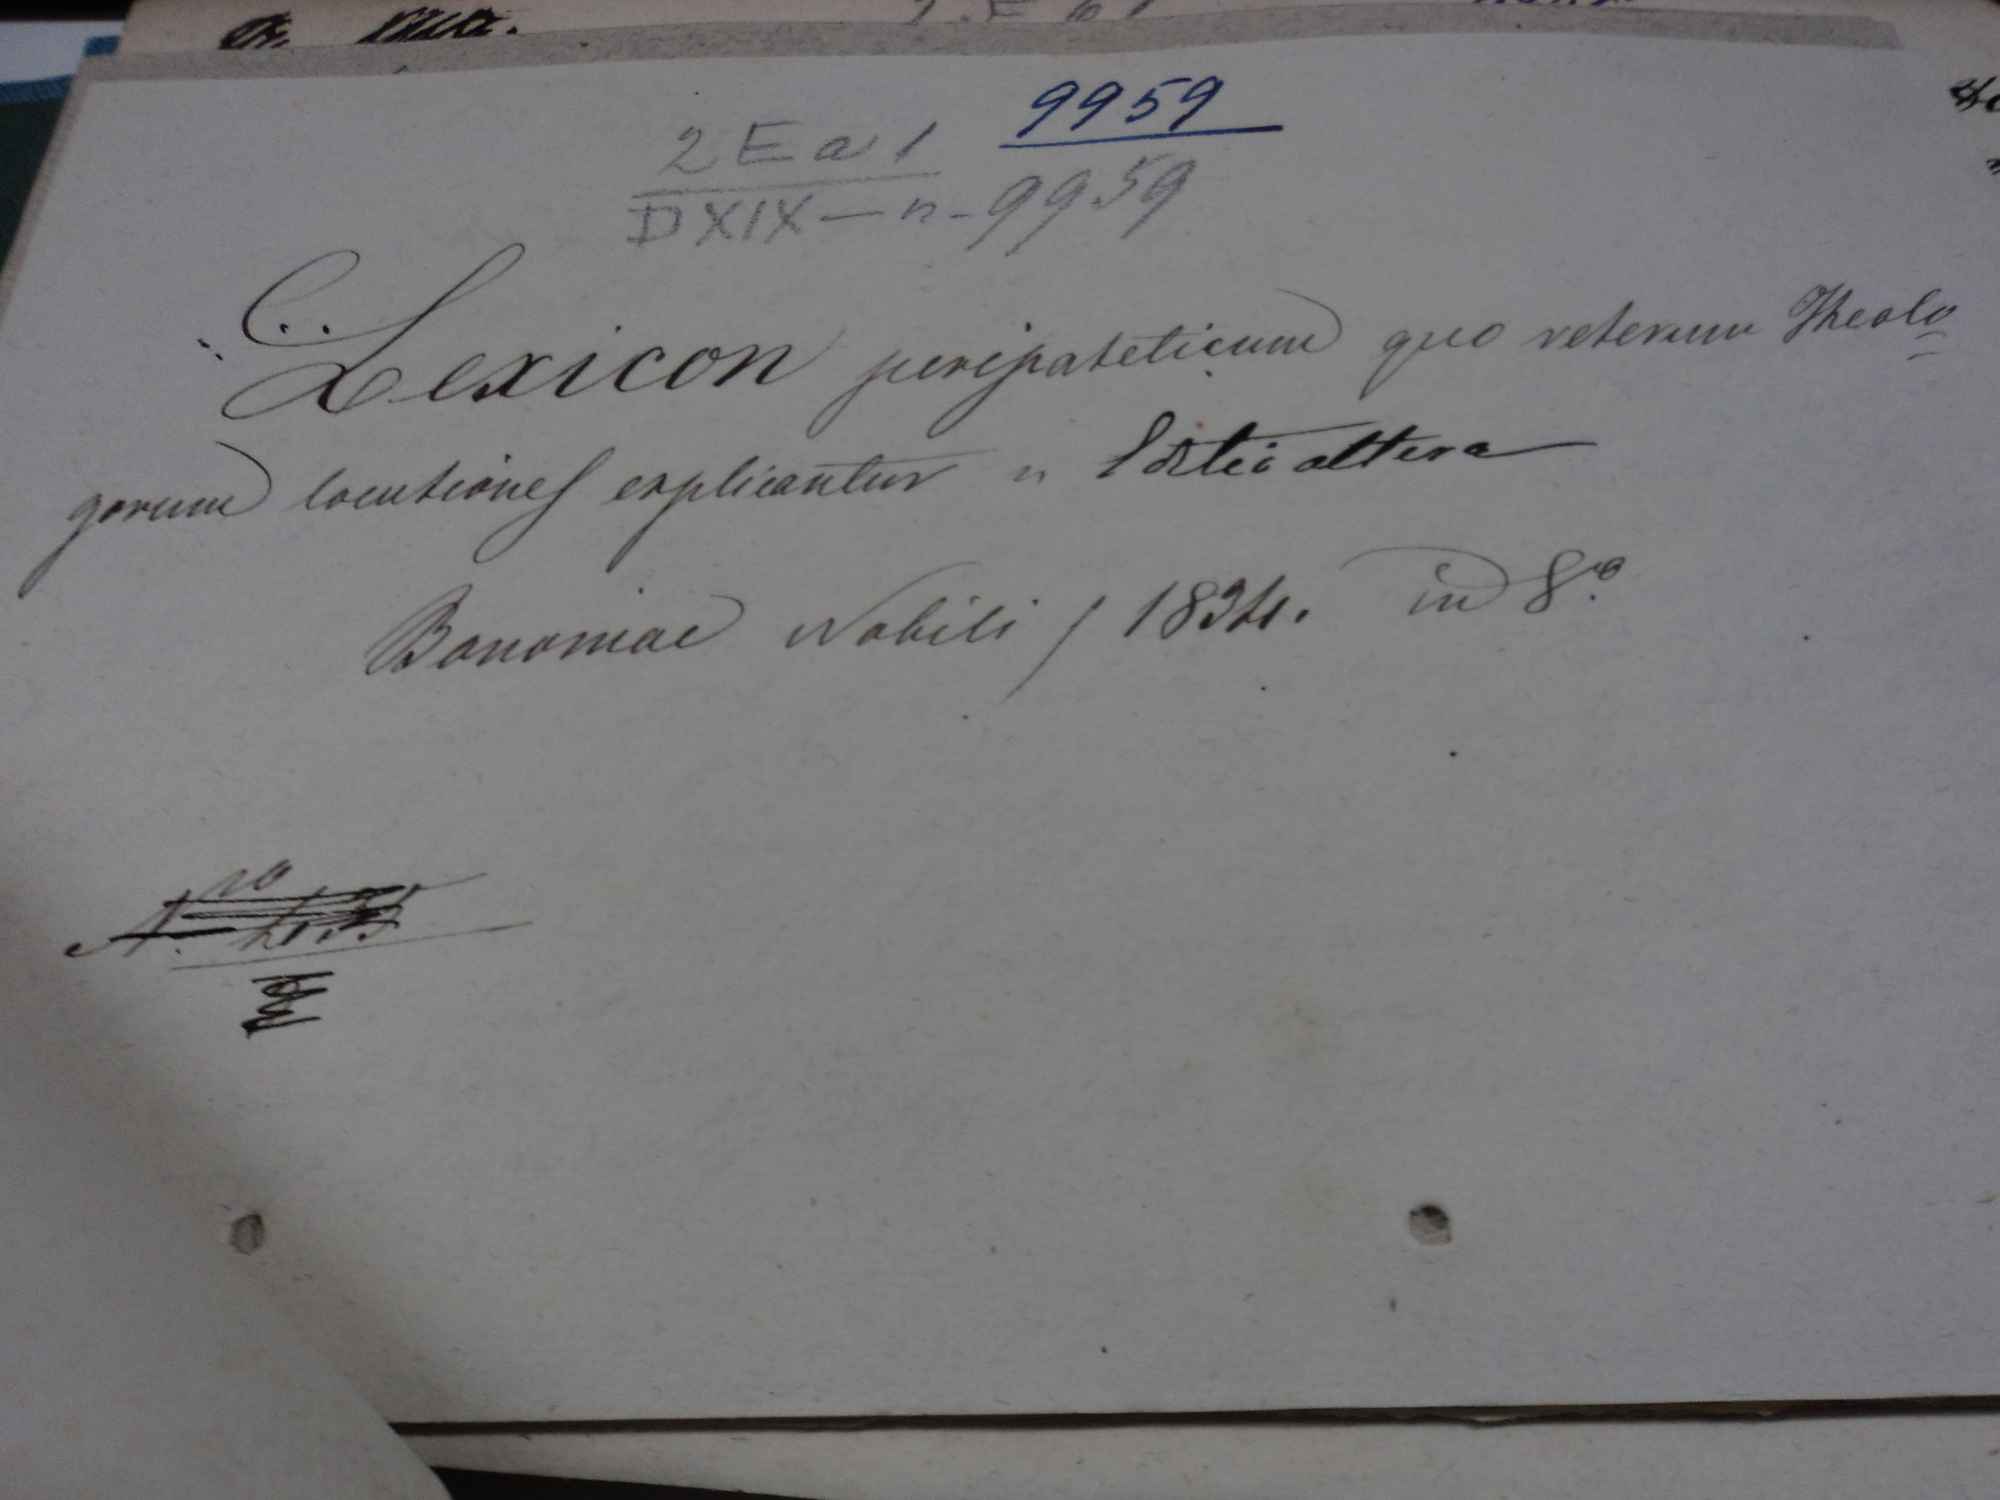 9959
2 E a 1
D XIX — n - 9959
Lexicon peripateticum quo veterum Theolo=
gorum locutiones explicantur " Editio altera
Bononiae Nobili / 1834. in 8.º